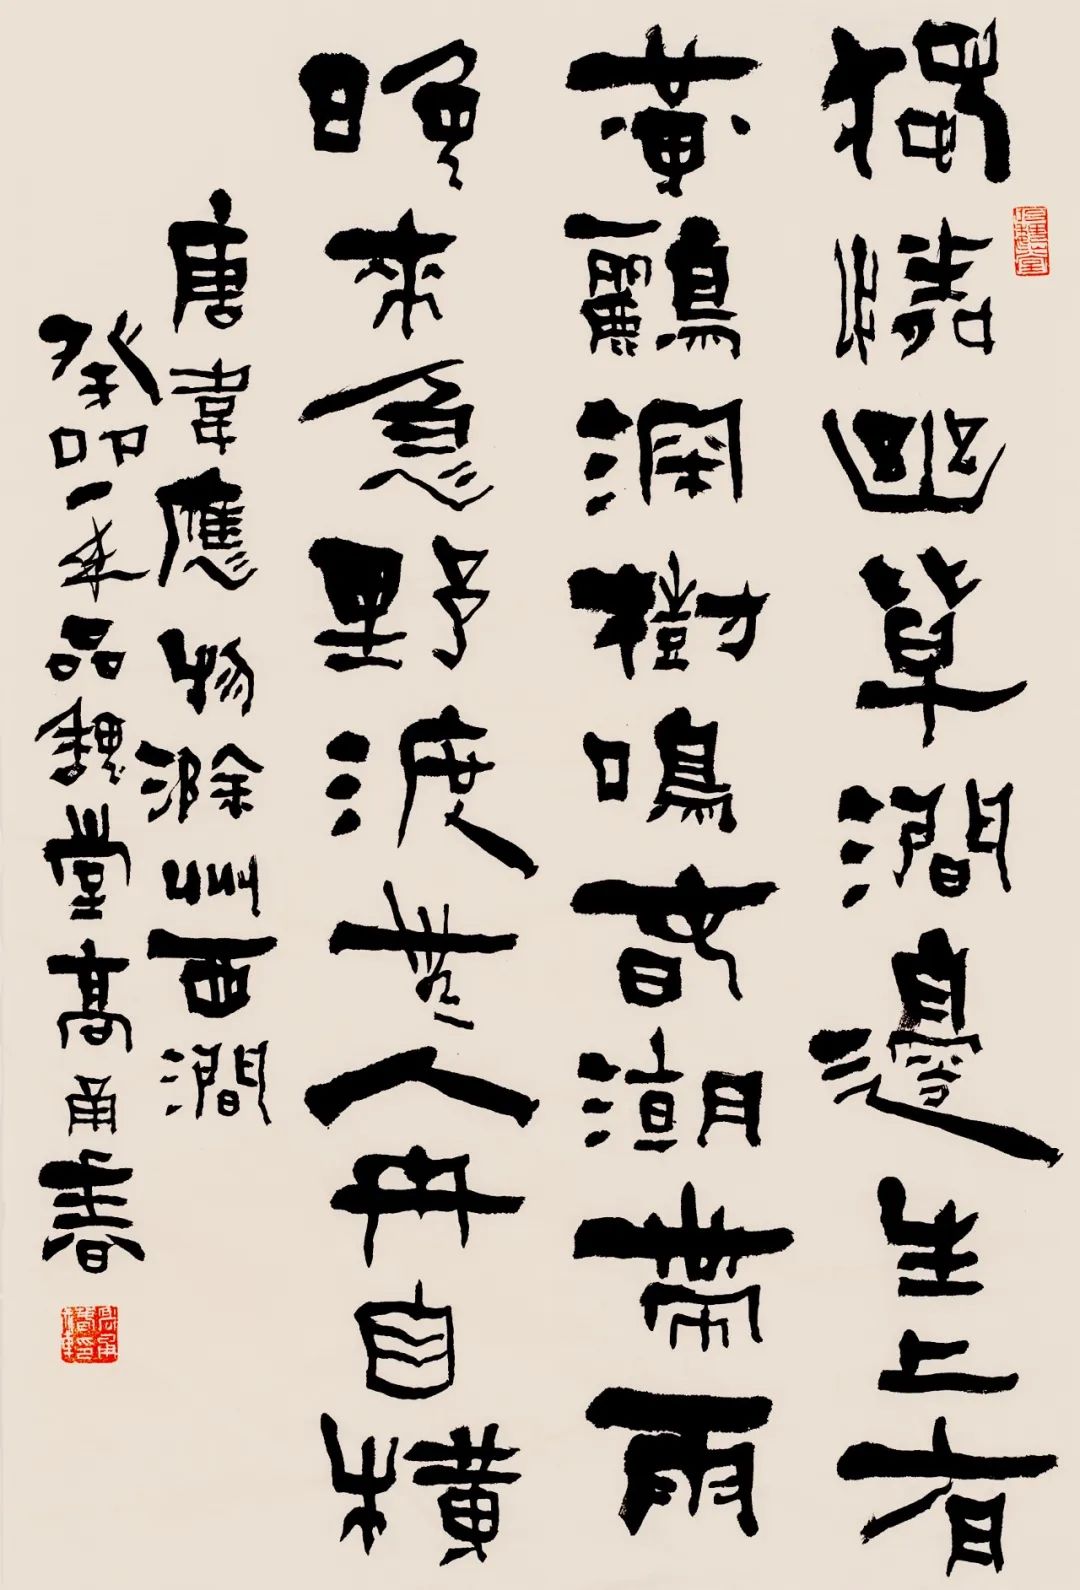 獨憐幽草澗邊生上有
黃鸝深樹鳴春潮帶雨
晚來急野渡無人舟自橫
唐韋應物滁州西澗
癸卯品魏堂高甬春